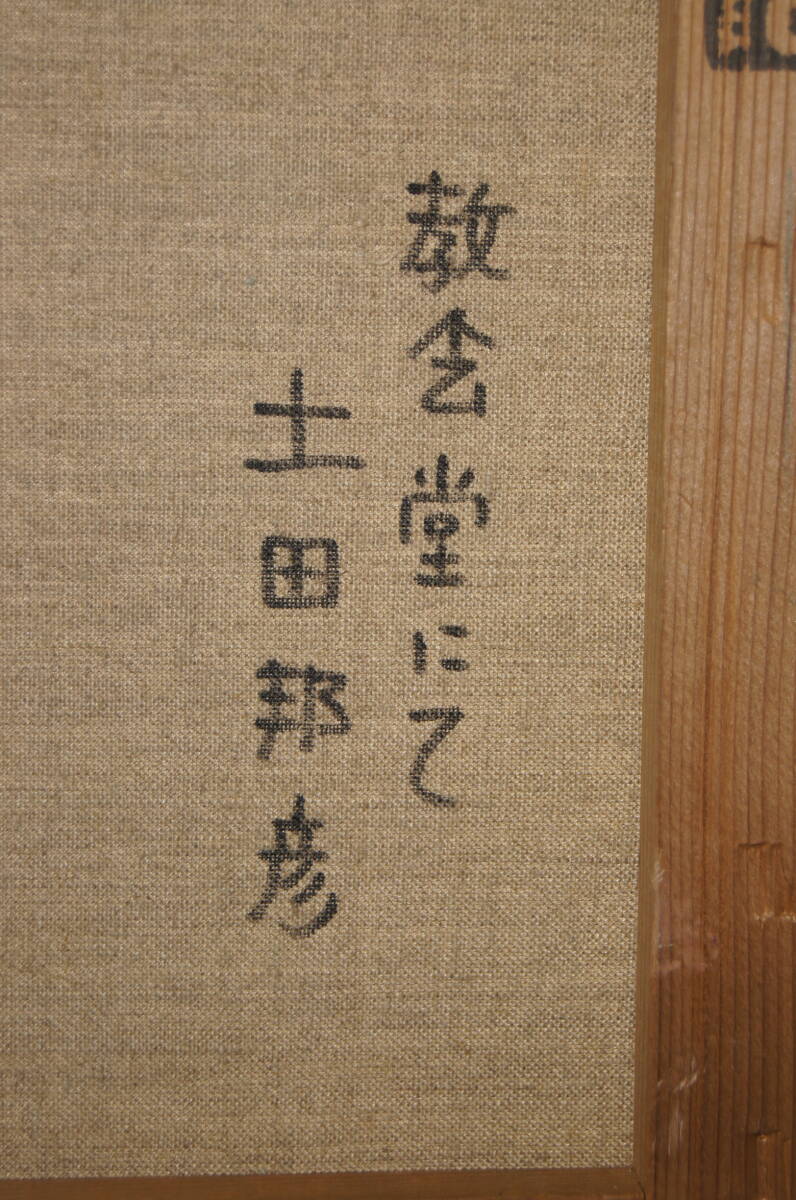 教会堂にて
土田邦彦